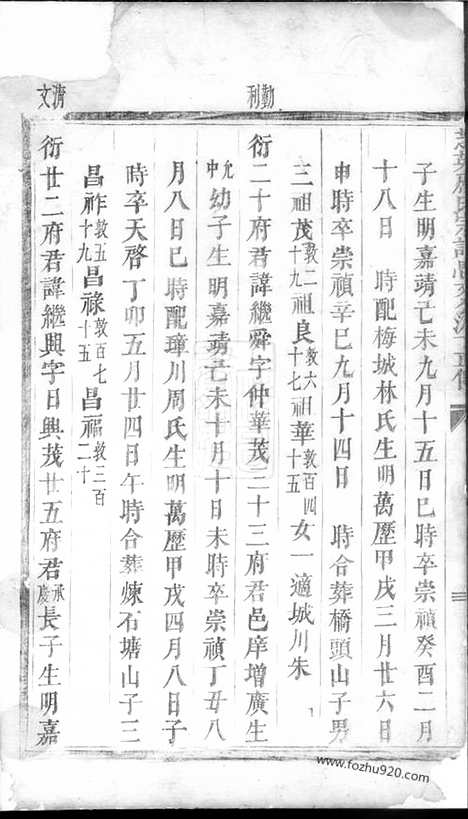 勤利
濟文
子生明嘉靖己未九月十五日巳時卒崇禎癸酉二月
十八日 時配梅城林氏生明萬歷甲戌三月廿六日
申時卒崇禎辛巳九月十四日 時合葬橋頭山子男
三祖茂敦二十九祖良敦六十七祖華敦百四十五女一適城川朱
衍二十府君諱繼舜字仲華茂三十三府君邑庠增廣生
允中幼子生明嘉靖己未十月十日未時卒崇禎丁丑八
月八日巳時配璋川周氏生明萬歷甲戌四月八日子
時卒天啓丁卯五月廿四日午時合葬煉石塘山子三
昌祚敦五十九昌祿敦百七十五昌福敦三百二十
衍廿二府君諱繼興字日興茂廿五府君承慶長子生明嘉
www.fozhu920.com